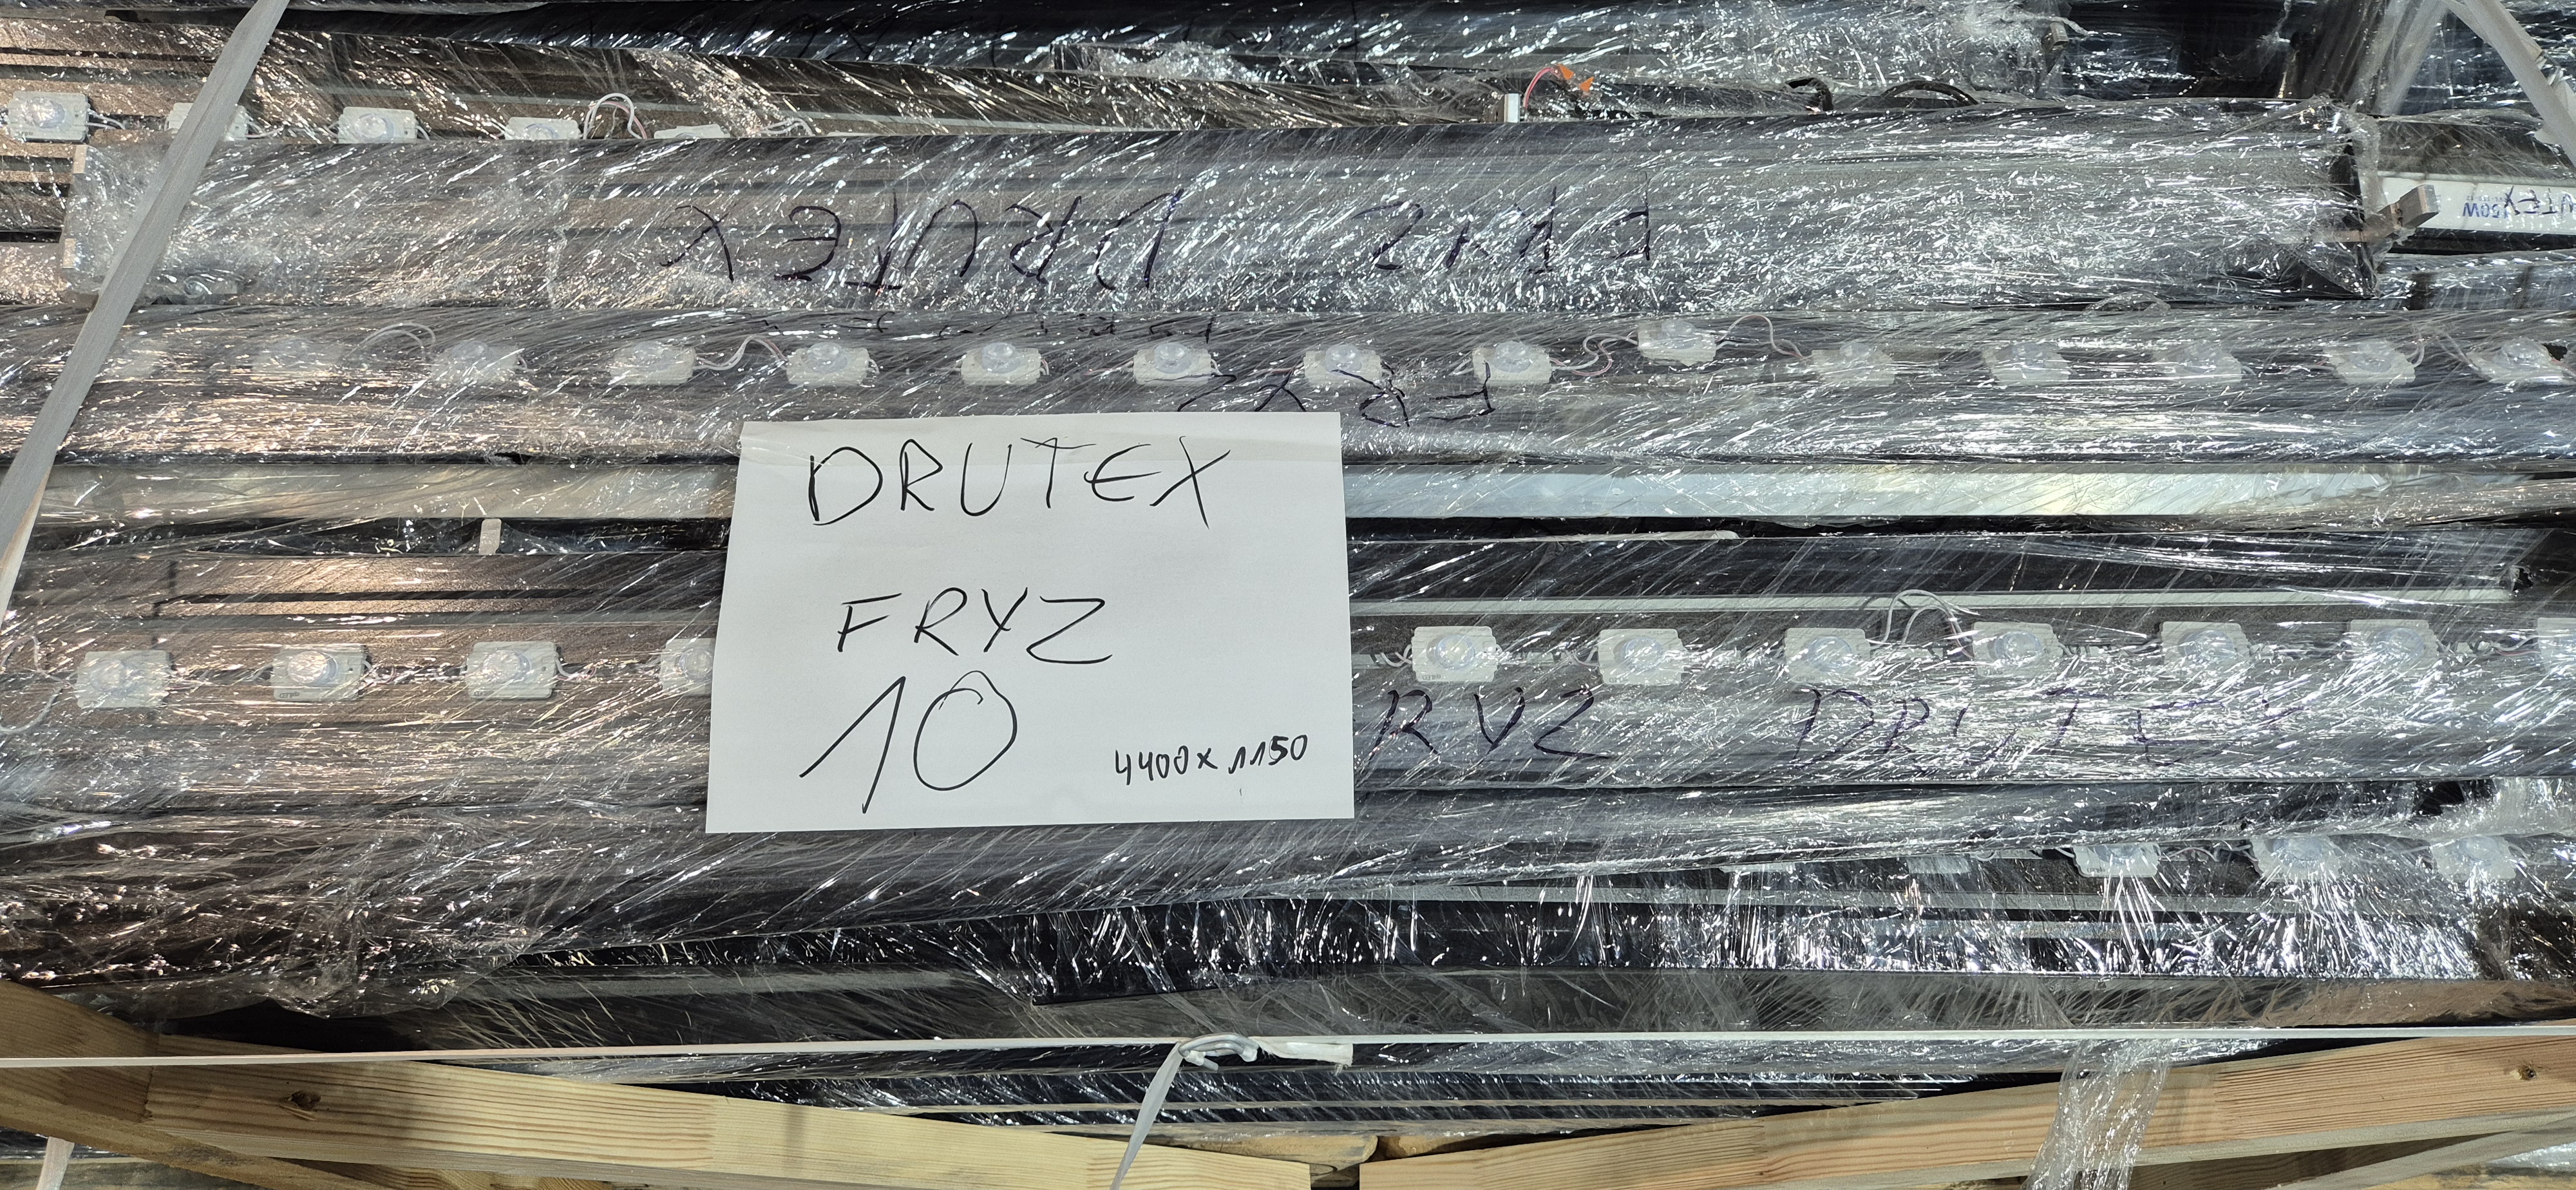 FRYZ DRUTEX
150W
UTEX
FRYZ
DRUTEX
FRYZ
10
4400x1150
RYZ DRUTEX